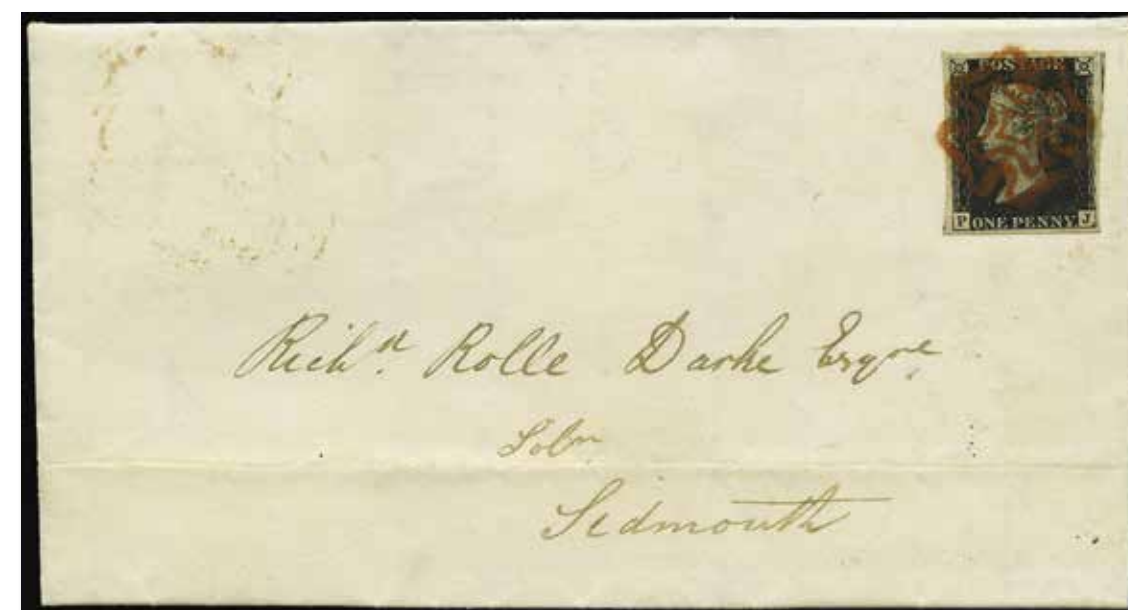 POSTAGE
P ONE PENNY J
Rich.d Rolle Darke Esqre.
Solr
Sidmouth